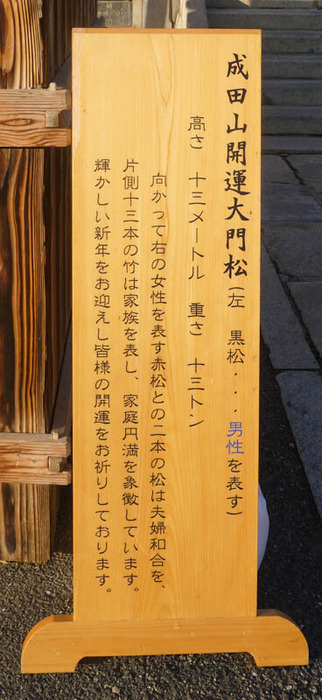 成田山開運大門松(左　黒松・・・男性を表す)
高さ　十三メートル　重さ　十三トン
向かって右の女性を表す赤松との二本の松は夫婦和合を、
片側十三本の竹は家族を表し、家庭円満を象徴しています。
輝かしい新年をお迎えし皆様の開運をお祈りしております。